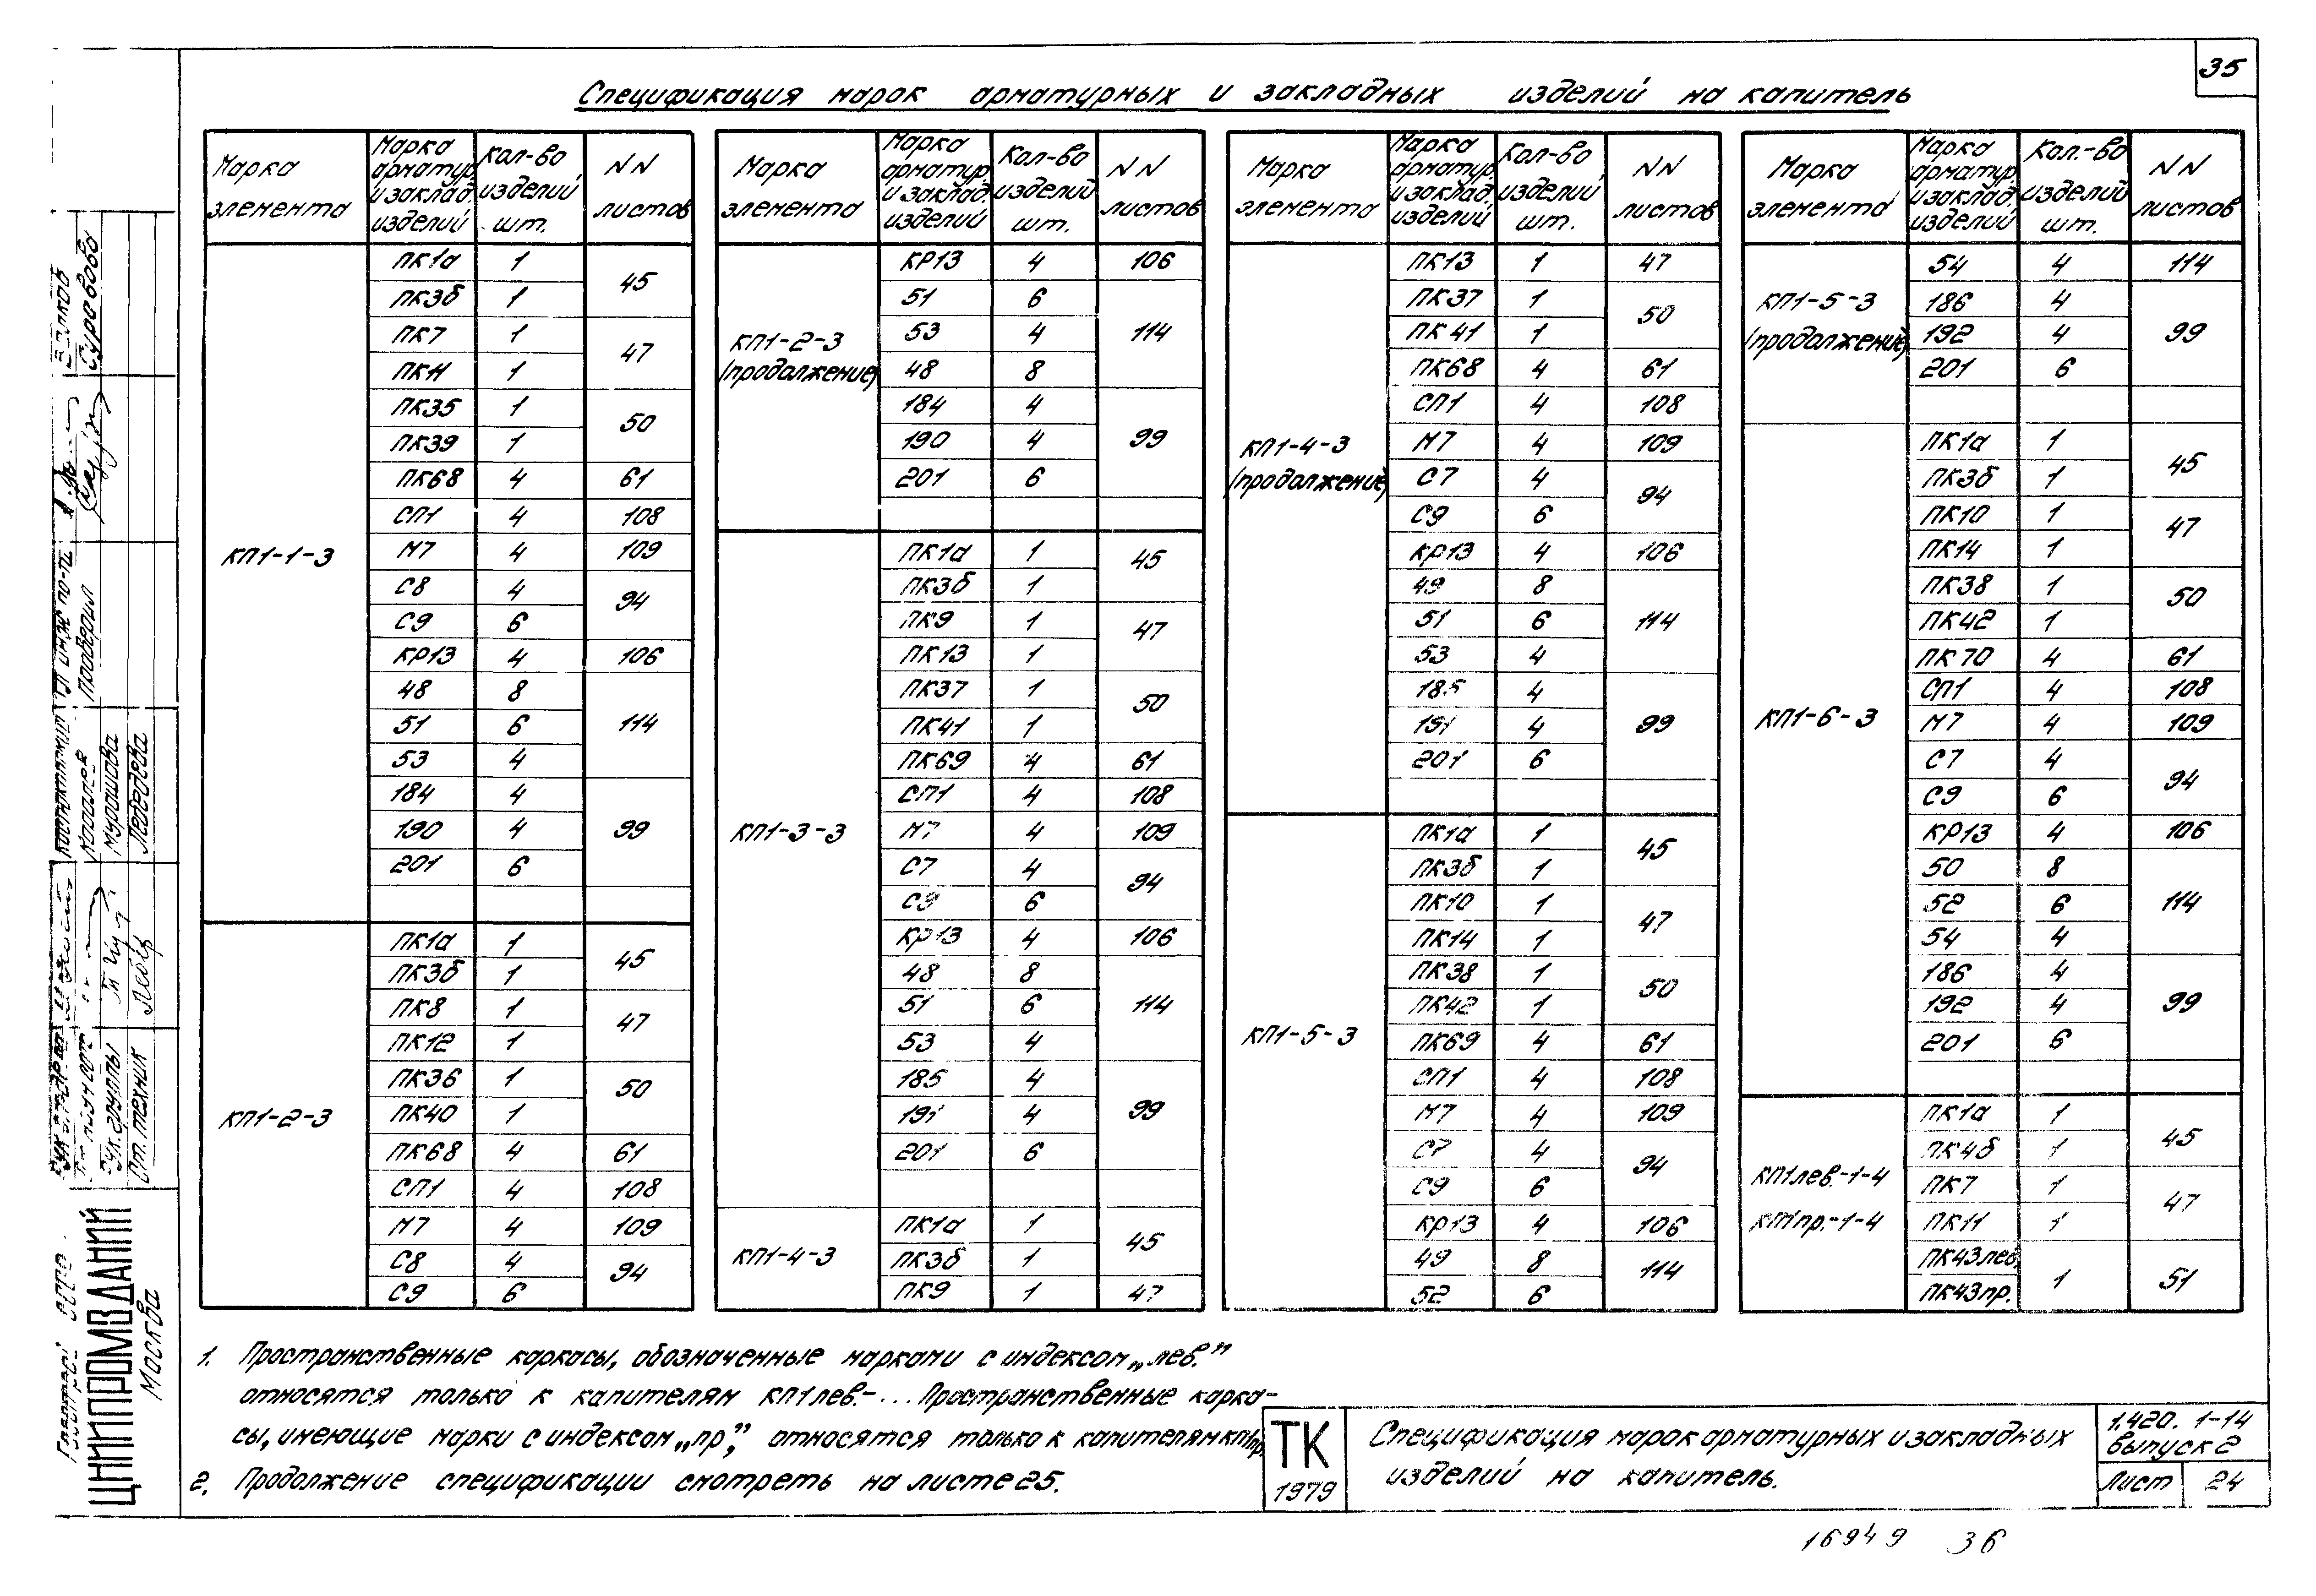 35
Спецификация марок арматурных и закладных изделий на капитель
Марка элемента | Марка арматур. и заклад. изделий | Кол-во изделий шт. | NN листов
КП1-1-3
ПК1а 1 45
ПК3б 1
ПК7 1 47
ПК11 1
ПК35 1 50
ПК39 1
ПК68 4 61
СП1 4 108
М7 4 109
С8 4 94
С9 6
КР13 4 106
48 8 114
51 6
53 4
184 4 99
190 4
201 6
КП1-2-3
ПК1а 1 45
ПК3б 1
ПК8 1 47
ПК12 1
ПК36 1 50
ПК40 1
ПК68 4 61
СП1 4 108
М7 4 109
С8 4 94
С9 6
Марка элемента | Марка арматур. и заклад. изделий | Кол-во изделий шт. | NN листов
КП1-2-3
(продолжение)
КР13 4 106
51 6 114
53 4
48 8
184 4 99
190 4
201 6
КП1-3-3
ПК1а 1 45
ПК3б 1
ПК9 1 47
ПК13 1
ПК37 1 50
ПК41 1
ПК69 4 61
СП1 4 108
М7 4 109
С7 4 94
С9 6
КР13 4 106
48 8 114
51 6
53 4
185 4 99
191 4
201 6
КП1-4-3
ПК1а 1 45
ПК3б 1
ПК9 1 47
Марка элемента | Марка арматур. и заклад. изделий | Кол-во изделий шт. | NN листов
КП1-4-3
(продолжение)
ПК13 1 47
ПК37 1 50
ПК41 1
ПК68 4 61
СП1 4 108
М7 4 109
С7 4 94
С9 6
КР13 4 106
49 8 114
51 6
53 4
185 4 99
191 4
201 6
КП1-5-3
ПК1а 1 45
ПК3б 1
ПК10 1 47
ПК14 1
ПК38 1 50
ПК42 1
ПК69 4 61
СП1 4 108
М7 4 109
С7 4 94
С9 6
КР13 4 106
49 8 114
52 6
Марка элемента | Марка арматур. и заклад. изделий | Кол.-во изделий шт. | NN листов
КП1-5-3
(продолжение)
54 4 114
186 4 99
192 4
201 6
КП1-6-3
ПК1а 1 45
ПК3б 1
ПК10 1 47
ПК14 1
ПК38 1 50
ПК42 1
ПК70 4 61
СП1 4 108
М7 4 109
С7 4 94
С9 6
КР13 4 106
50 8 114
52 6
54 4
186 4 99
192 4
201 6
КП1лев.-1-4
КП1пр.-1-4
ПК1а 1 45
ПК4б 1
ПК7 1 47
ПК11 1
ПК43лев. 1 51
ПК43пр.
1. Пространственные каркасы, обозначенные марками с индексом „лев.”
относятся только к капителям КП1лев.-... Пространственные карка-
сы, имеющие марки с индексом „пр”, относятся только к капителям КП1пр.
2. Продолжение спецификации смотреть на листе 25.
ТК
1979
Спецификация марок арматурных и закладных
изделий на капитель.
1.420. 1-14
выпуск 2
лист 24
16949 36
ЦНИИПРОМЗДАНИЙ
Москва
Рук. группы
Ст. техник
Мурашова
Лебедева
Проверил
Суровова